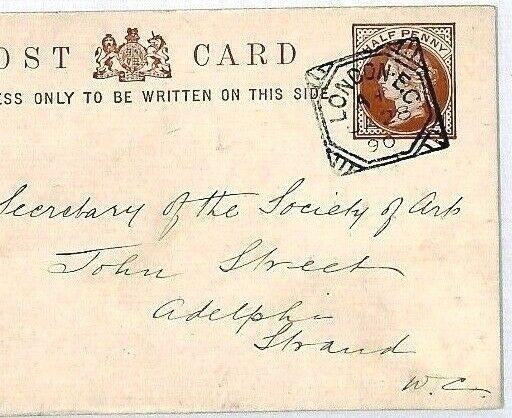 OST CARD
ESS ONLY TO BE WRITTEN ON THIS SIDE
HALF PENNY
LONDON·E.C.
28
90
Secretary of the Society of Arts
John Street
Adelphi
Strand
W.C.